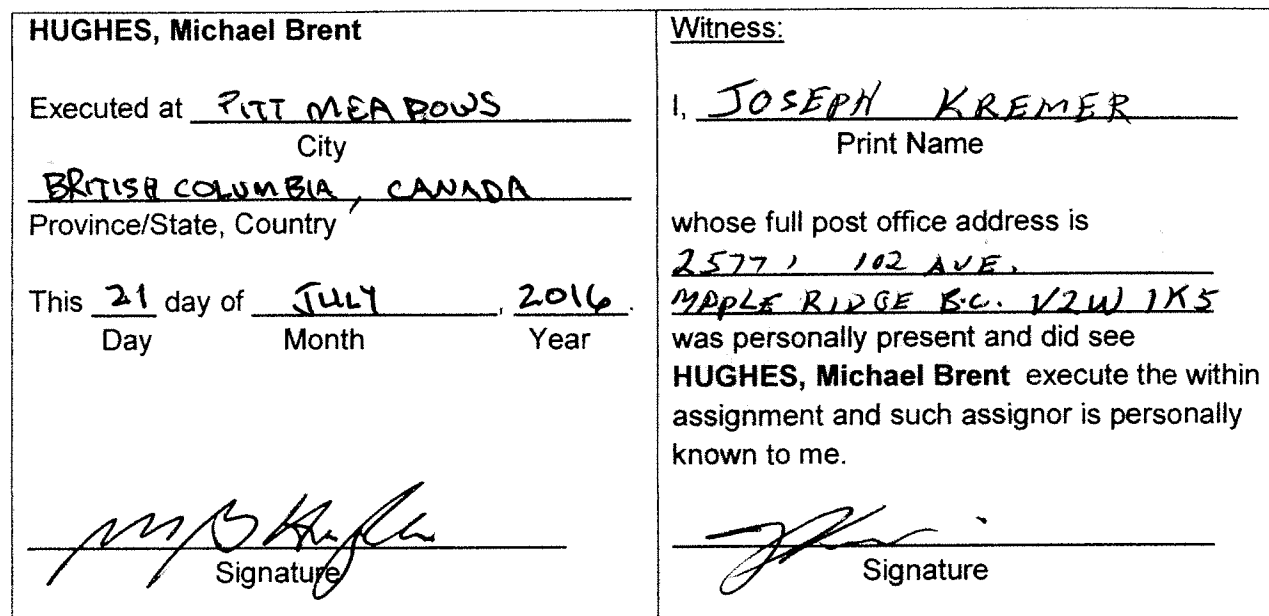 HUGHES, Michael Brent
Executed at PITT MEADOWS
City
BRITISH COLUMBIA, CANADA
Province/State, Country
This 21 day of JULY, 2016.
Day Month Year
Signature
Witness:
I, JOSEPH KREMER
Print Name
whose full post office address is
25771 102 AVE.
MAPLE RIDGE B.C. V2W 1K5
was personally present and did see
HUGHES, Michael Brent execute the within
assignment and such assignor is personally
known to me.
Signature